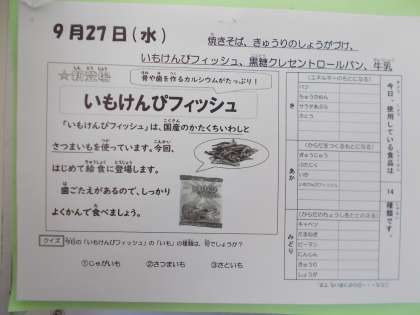 9月27日(水)
焼きそば、きゅうりのしょうがづけ、
いもけんぴフィッシュ、黒糖クレセントロールパン、牛乳
骨や歯を作るカルシウムがたっぷり!
いもけんぴフィッシュ
「いもけんぴフィッシュ」は、国産のかたくちいわしと
さつまいもを使っています。今回、
はじめて給食に登場します。
歯ごたえがあるので、しっかり
よくかんで食べましょう。
クイズ 今日の「いもけんぴフィッシュ」の「いも」の種類は、何でしょうか?
①じゃがいも ②さつまいも ③さといも
今日、使用している食品は 14 種類です。
き
(エネルギーのもとになる)
パン
ちゅうかめん
さとう
あか
(からだをつくるもとになる)
ぎゅうにゅう
ぶたにく
いか
いもけんぴフィッシュ
みどり
(からだのちょうしをととのえる)
キャベツ
たまねぎ
ピーマン
にんじん
きゅうり
しょうが